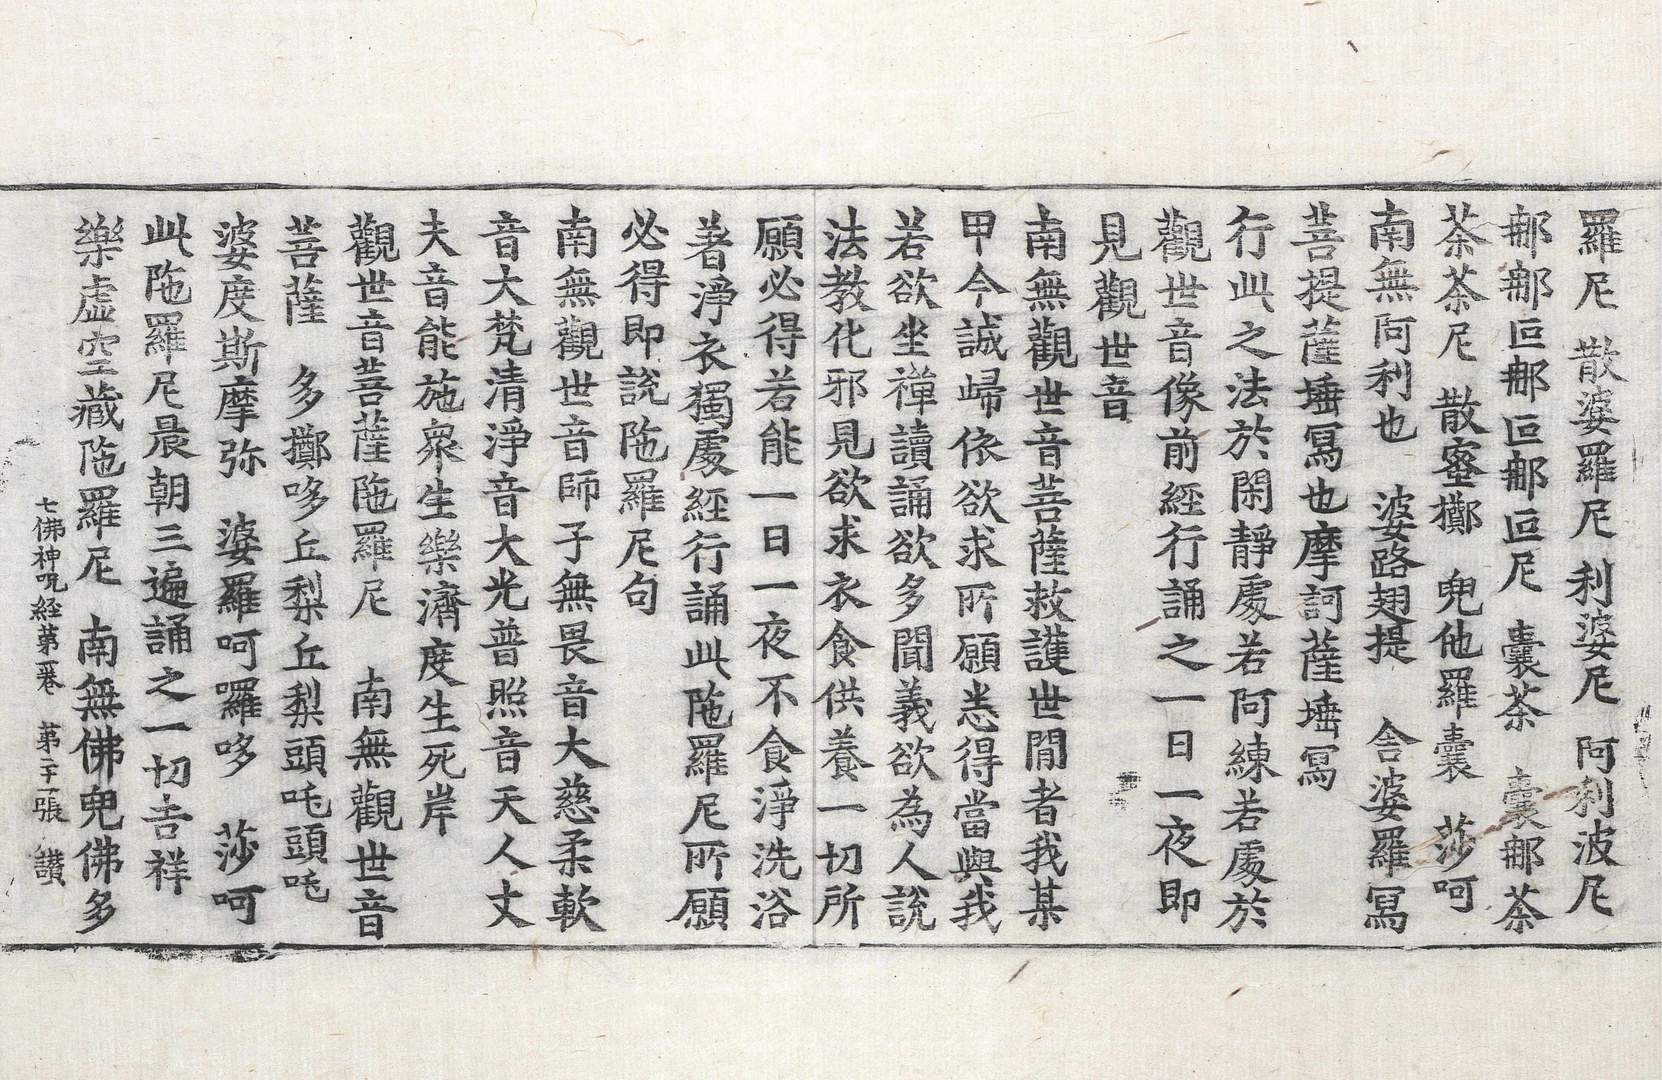 羅尼 散婆羅尼 利婆尼 阿利波尼
那那叵那叵那叵尼 囊荼 囊那荼
荼荼尼 散蜜擲 兜他羅囊 莎呵
南無阿利也 婆路翅提 舍婆羅冩
菩提薩埵冩也摩訶薩埵冩
行此之法於閑靜處若阿練若處於
觀世音像前經行誦之一日一夜即
見觀世音
南無觀世音菩薩救護世閒者我某
甲今誠歸依欲求所願悉得當與我
若欲坐禪讀誦欲多聞義欲為人說
法教化邪見欲求衣食供養一切所
願必得若能一日一夜不食淨洗浴
著淨衣獨處經行誦此陁羅尼所願
必得即說陁羅尼句
南無觀世音師子無畏音大慈柔軟
音大梵清淨音大光普照音天人丈
夫音能施衆生樂濟度生死岸
觀世音菩薩陁羅尼 南無觀世音
菩薩 多擲哆丘梨丘梨頭吒頭吒
婆度斯摩弥 婆羅呵囉哆 莎呵
此陁羅尼晨朝三遍誦之一切吉祥
樂虛空藏陁羅尼 南無佛兜佛多
七佛神呪経苐一卷 苐二十一張 讃